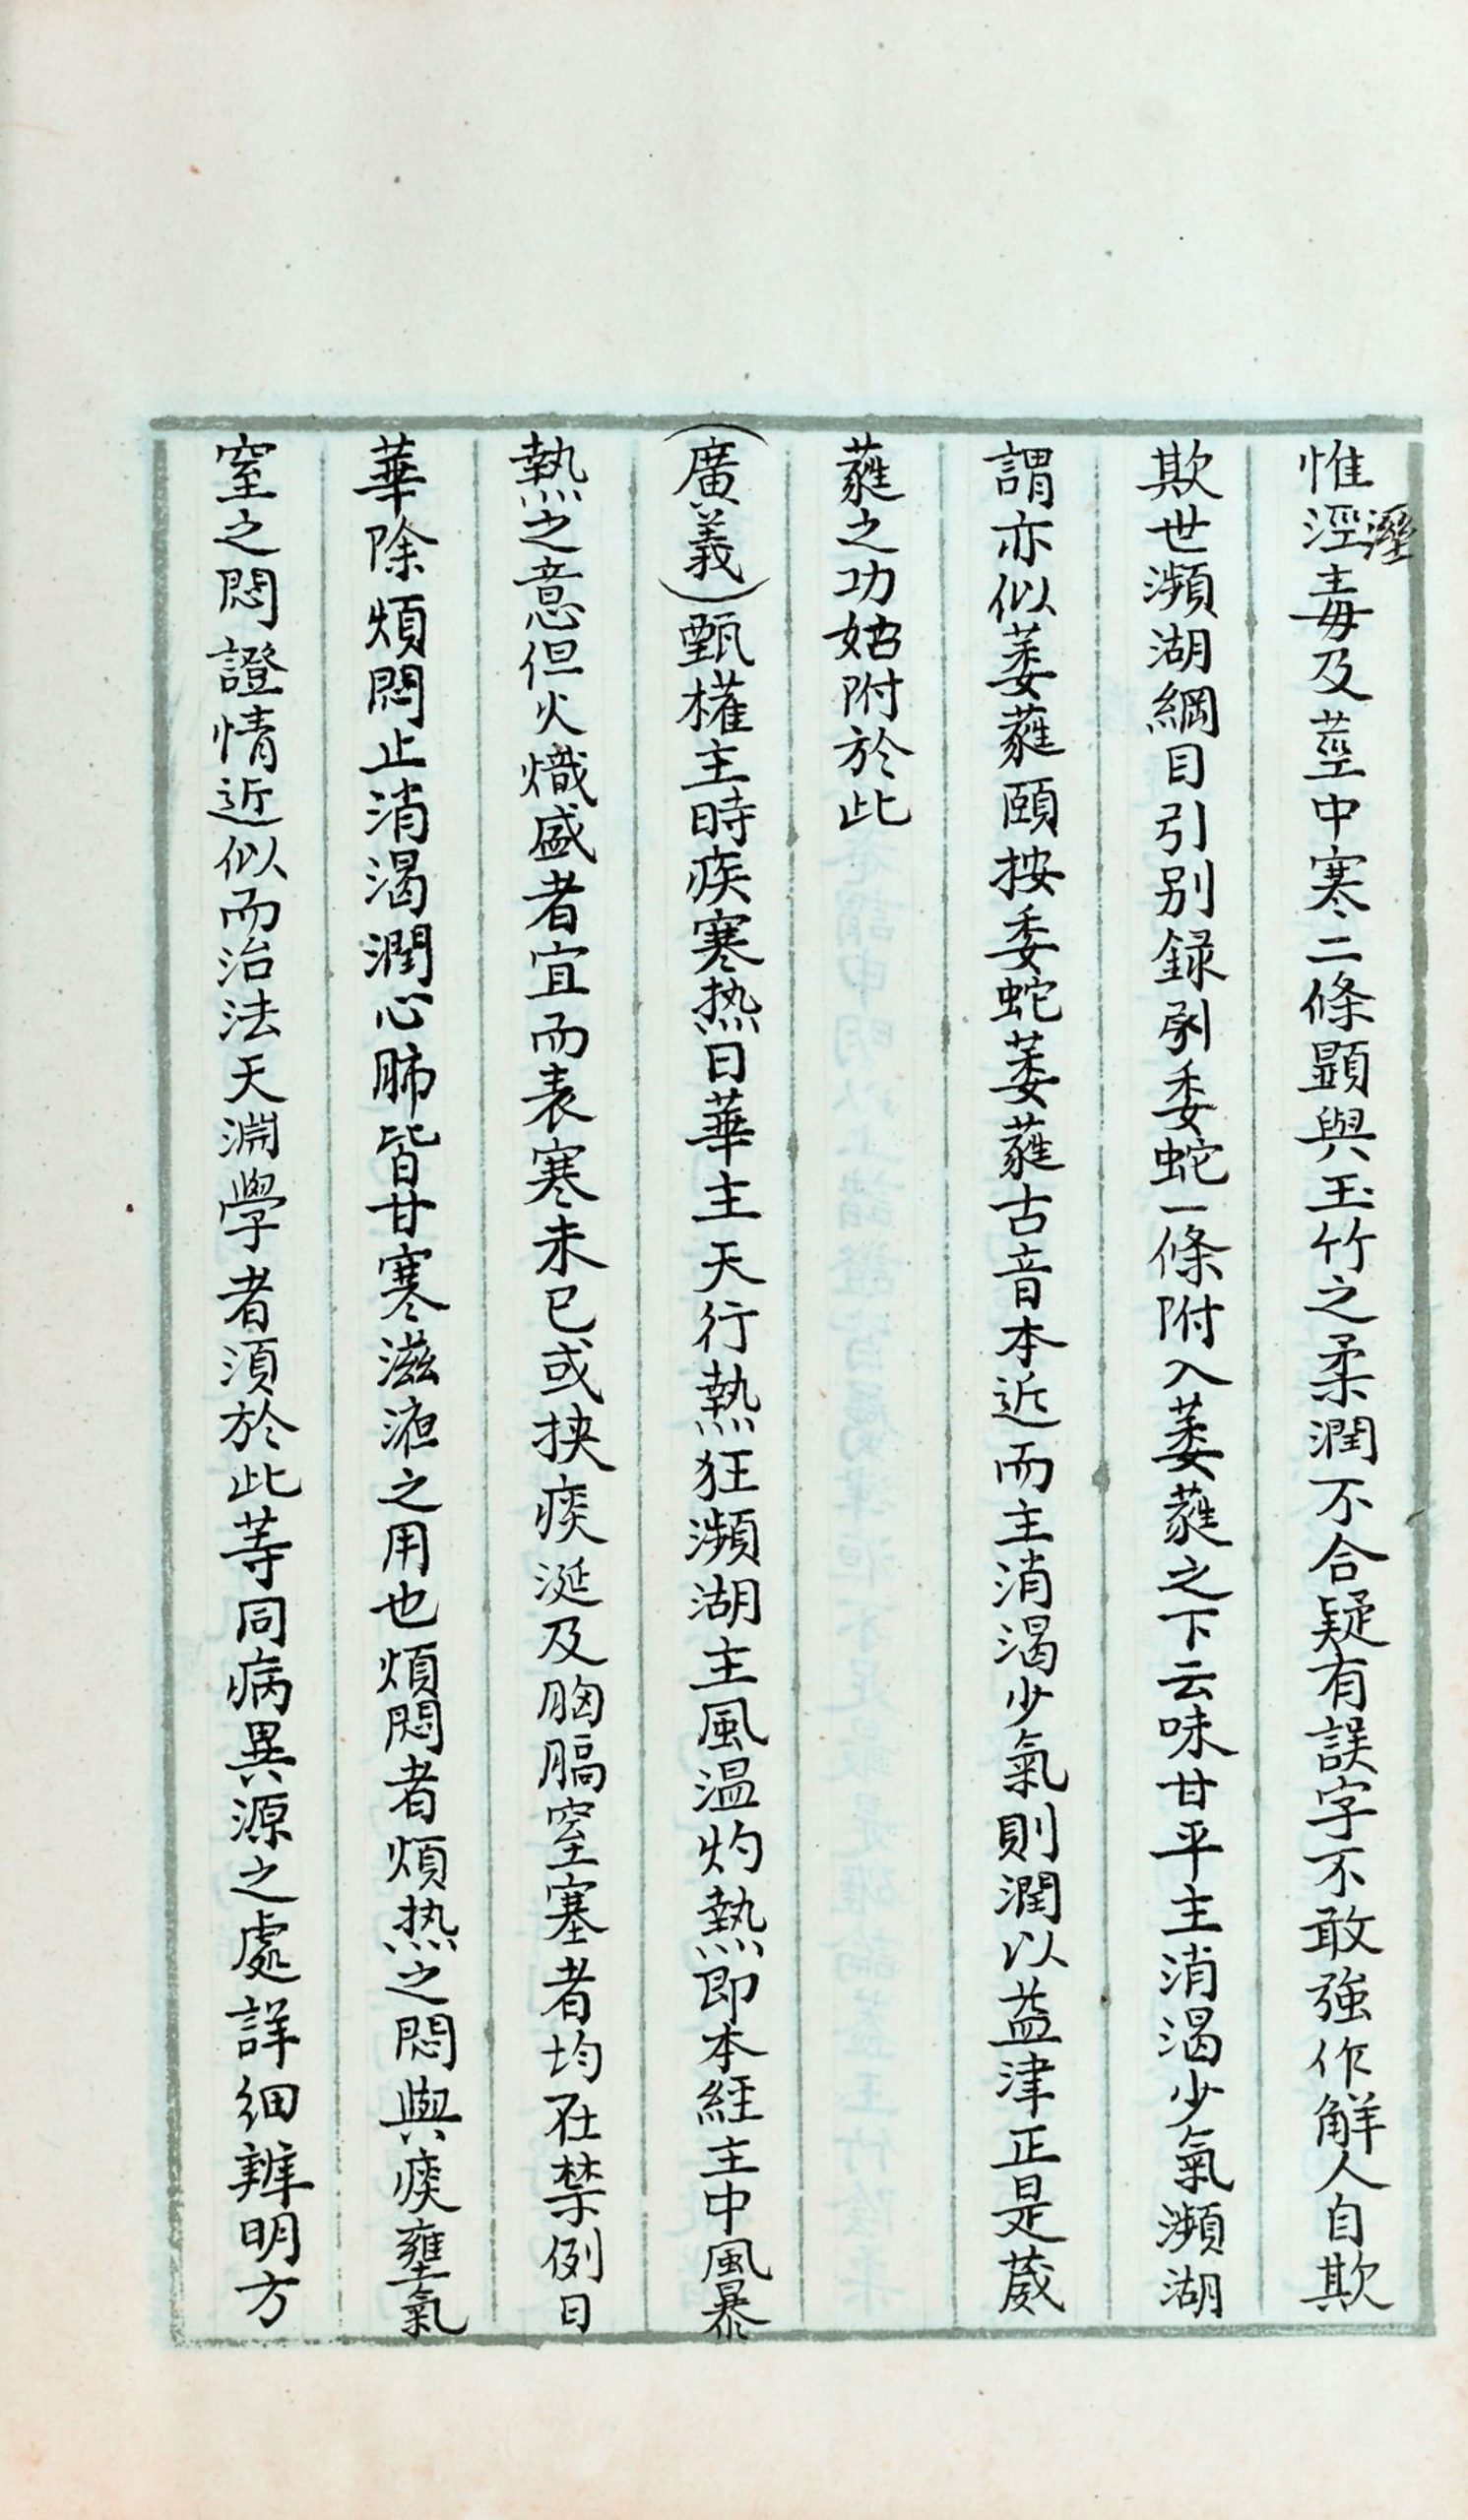 惟淫溼毒及莖中寒二條顯與玉竹之柔潤不合疑有誤字不敢強作解人自欺
欺世瀕湖綱目引别録別委蛇一條附入萎蕤之下云味甘平主消渴少氣瀕湖
謂亦似萎蕤頤按委蛇萎蕤古音本近而主消渴少氣則潤以益津正是葳
蕤之功姑附於此
(廣義)甄權主時疾寒热日華主天行熱狂瀕湖主風温灼熱即本經主中風暴
熱之意但火熾盛者宜而表寒未已或挾痰涎及胸膈窒塞者均在禁例日
華除煩悶止消渴潤心肺皆甘寒滋液之用也煩悶者煩热之悶與痰壅氣
窒之悶證情近似而治法天淵學者須於此等同病異源之處詳細辨明方